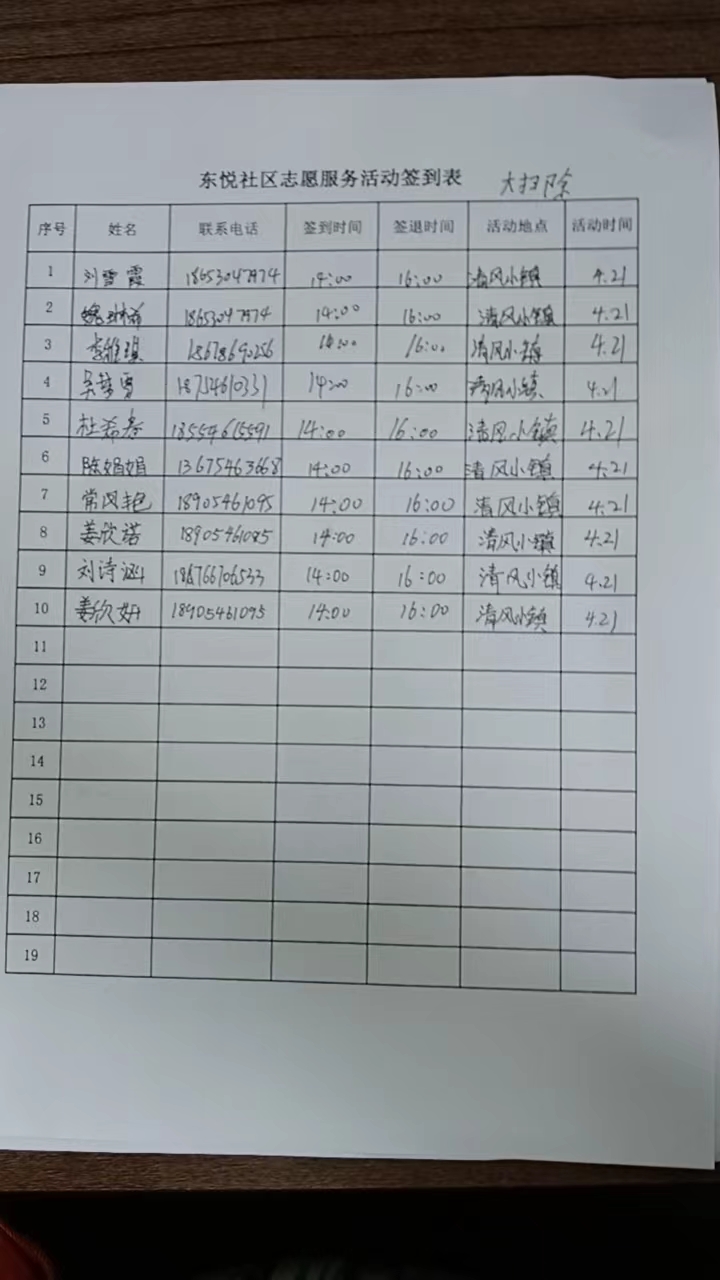 东悦社区志愿服务活动签到表 大扫除
序号 姓名 联系电话 签到时间 签退时间 活动地点 活动时间
1 刘雪霞 18653047974 14:00 16:00 清风小镇 4.21
2 18653047974 14:00 16:00 清风小镇 4.21
3 李维琪 18678690256 14:00 16:00 清风小镇 4.21
4 18754610331 14:00 16:00 清风小镇 4.21
5 杜希春 18554615591 14:00 16:00 清风小镇 4.21
6 陈娟娟 13675463668 14:00 16:00 清风小镇 4.21
7 常风艳 18905461095 14:00 16:00 清风小镇 4.21
8 姜欣诺 18905461085 14:00 16:00 清风小镇 4.21
9 刘诗涵 18766706533 14:00 16:00 清风小镇 4.21
10 姜欣妍 18905461095 14:00 16:00 清风小镇 4.21
11
12
13
14
15
16
17
18
19